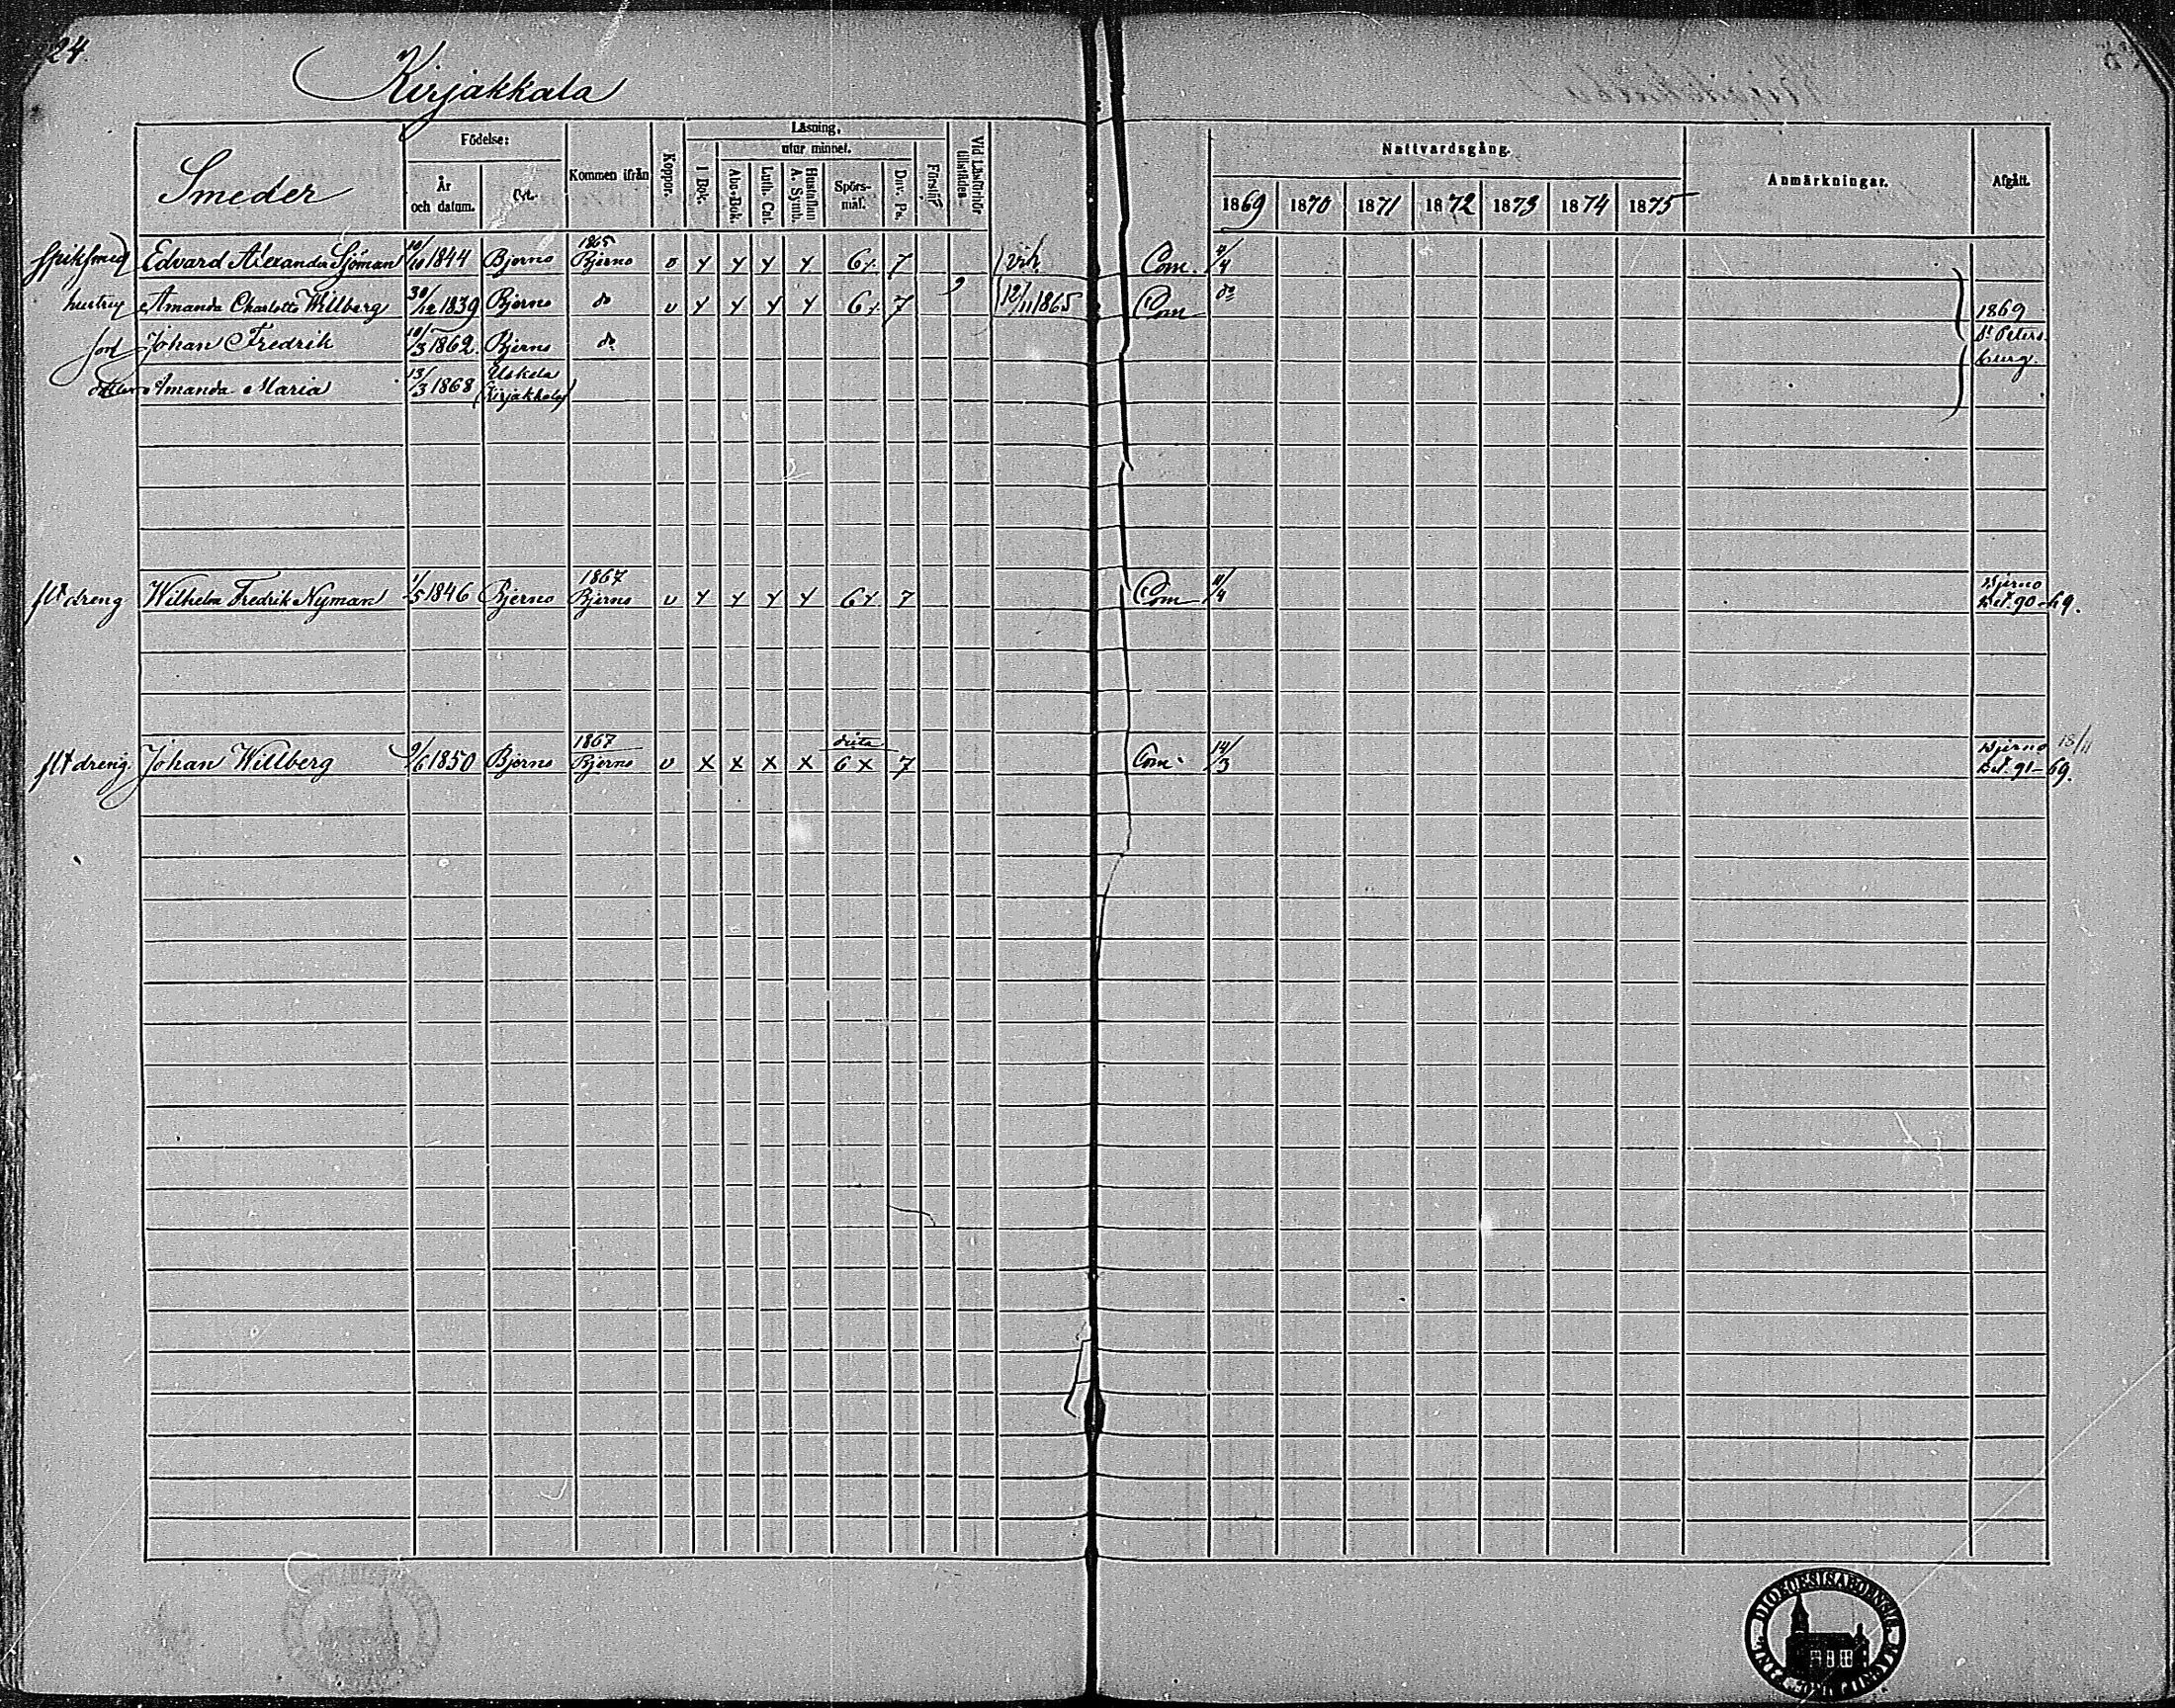 24.
Kirjakkala
Smeder
Födelse:
År och datum.
Ort.
Kommen ifrån
Koppor.
Läsning,
utur minnet.
I Bok.
Abc-Bok.
Luth. Cat.
Hustaflan A. Symb.
Spörs-mål.
Dav. Ps.
Förstår
Vid Läsförhör tillstädes
Nattvardsgång.
1869 1870 1871 1872 1873 1874 1875
Anmärkningar.
Afgått.
Spiksmed Edvard Alexander Sjöman 10/10 1844 Bjerno 1865 Bjerno v y y y y 6y. 7 vih. Com. 11/4
hustru Amanda Charlotta Willberg 30/12 1839 Bjerno do v y y y y 6y. 7 12/11 1865 Com do 1869
son Johan Fredrik 10/3 1862. Bjerno do St Peters-
burg.
dotter Amanda Maria 13/3 1868 Uskela (Kirjakkala)
dreng Wilhelm Fredrik Nyman 1/5 1846 Bjerno 1867 Bjerno v y y y y 6y 7 Com 11/4 Bjerno
Bet. 90-69.
dreng. Johan Willberg 9/6 1850 Bjerno 1867 Bjerno v x x x x 6x 7 Com. 14/3 Bjerno 15/11
Bet. 91-69.